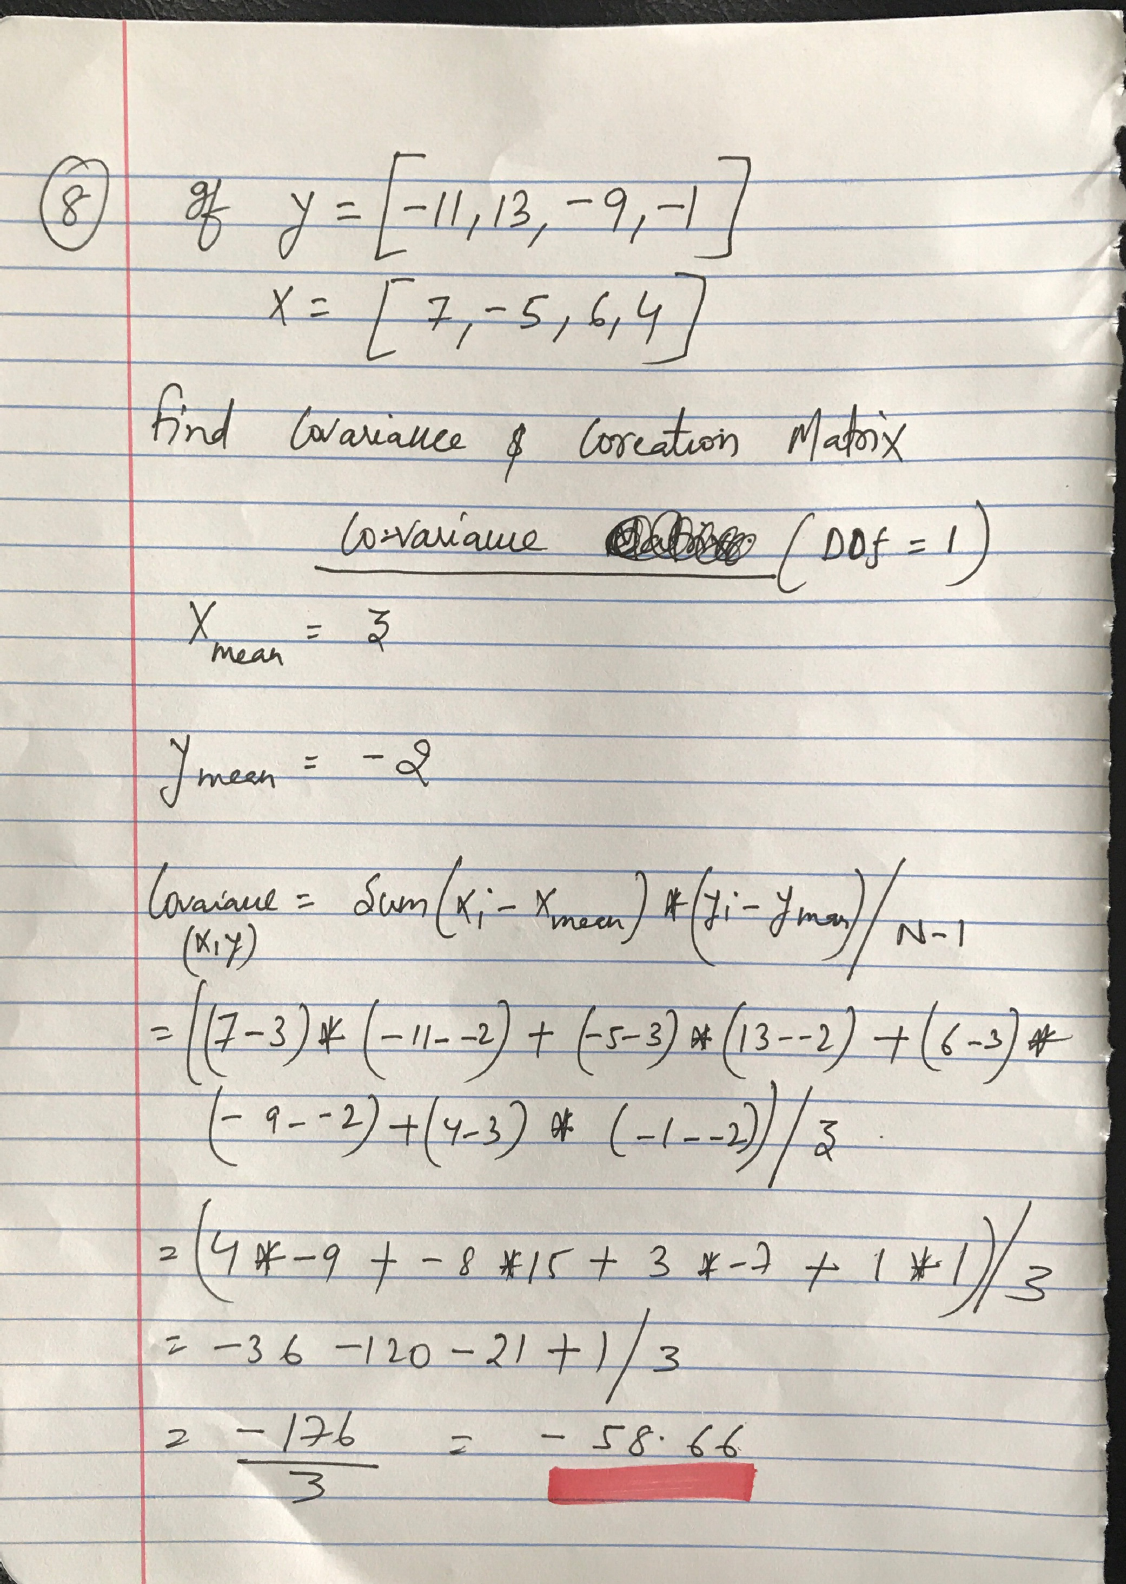 8 If y = [-11, 13, -9, -1]
x = [7, -5, 6, 4]
Find Covariance & Coreation Matrix
Co-variance (DDf = 1)
Xmean = 3
ymean = -2
Covariance = Sum(xi - xmean) * (yi - ymean) / N-1
(x,y)
= ((7-3) * (-11--2) + (-5-3) * (13--2) + (6-3) *
(-9--2) + (4-3) * (-1--2)) / 3
= (4 * -9 + -8 * 15 + 3 * -7 + 1 * 1) / 3
= -36 -120 -21 + 1 / 3
= -176 = -58.66
3